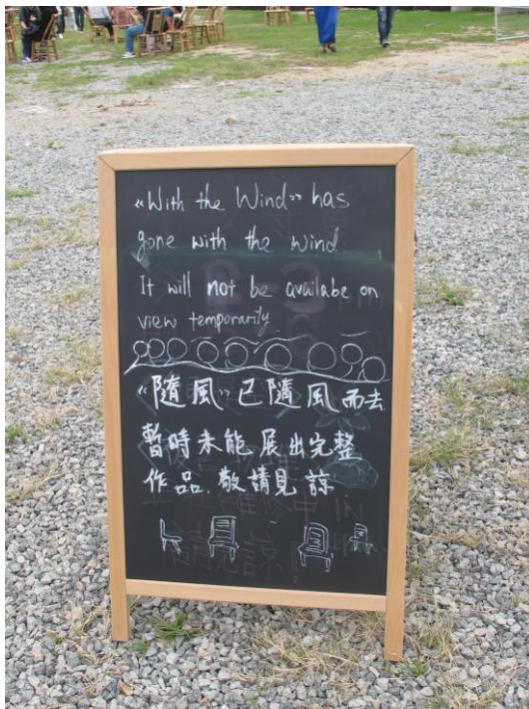 «With the Wind» has
gone with the wind
It will not be availabe on
view temporarity.
«隨風» 已隨風而去
暫時未能展出完整
作品.敬請見諒